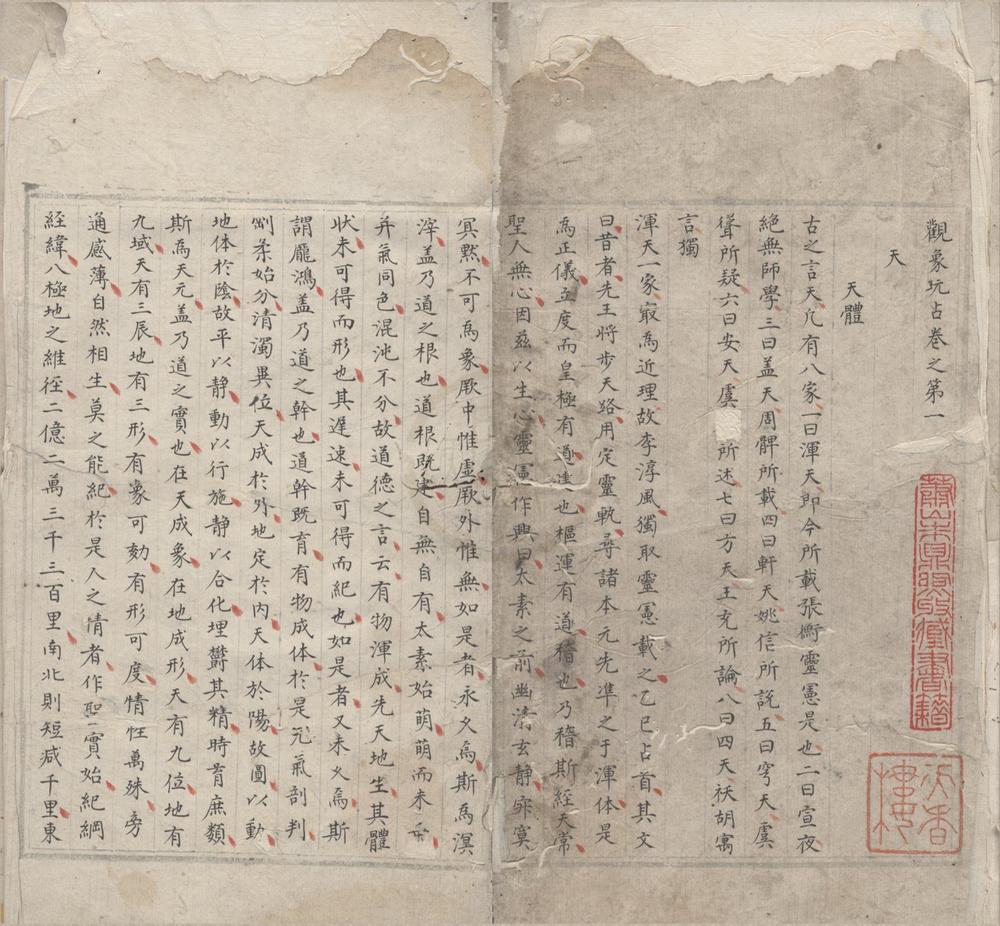 觀象玩占卷之第一
天
天體
古之言天凢有八家一曰渾天即今所載張衡靈憲是也二曰宣夜
絶無師學三曰盖天周髀所載四曰軒天姚信所說五曰穹天虞
聳所疑六曰安天虞 所述七曰方天王充所論八曰四天祆胡寓
言獨
渾天一家㝡爲近理故李淳風獨取靈憲載之乙巳占首其文
曰昔者先王將步天路用定靈軌尋諸本元先準之于渾体是
爲正儀立度而皇極有逌建也樞運有逌稽也乃稽斯經天常
聖人無心因兹以生心靈憲作興曰太素之前幽清玄静㝛寞
冥黙不可爲象厥中惟虚厥外惟無如是者永乆焉斯爲溟
滓盖乃道之根也道根既建自無自有太素始萌萌而未
并氣同色混沌不分故道德之言云有物渾成先天地生其體
狀未可得而形也其遲速未可得而紀也如是者又未乆焉斯
謂龐鴻盖乃道之幹也道幹既育有物成体於是元氣剖判
剛柔始分清濁異位天成於外地定於内天体於陽故圓以動
地体於陰故平以静動以行施静以合化堙欝其精時育庶類
斯爲天元盖乃道之實也在天成象在地成形天有九位地有
九域天有三辰地有三形有象可効有形可度情性萬殊旁
通感薄自然相生莫之能紀於是人之情者作聖實始紀綱
經緯八極地之維徑二億二萬三千三百里南北則短减千里東
蕭山朱鼎煦收藏書籍
天香樓